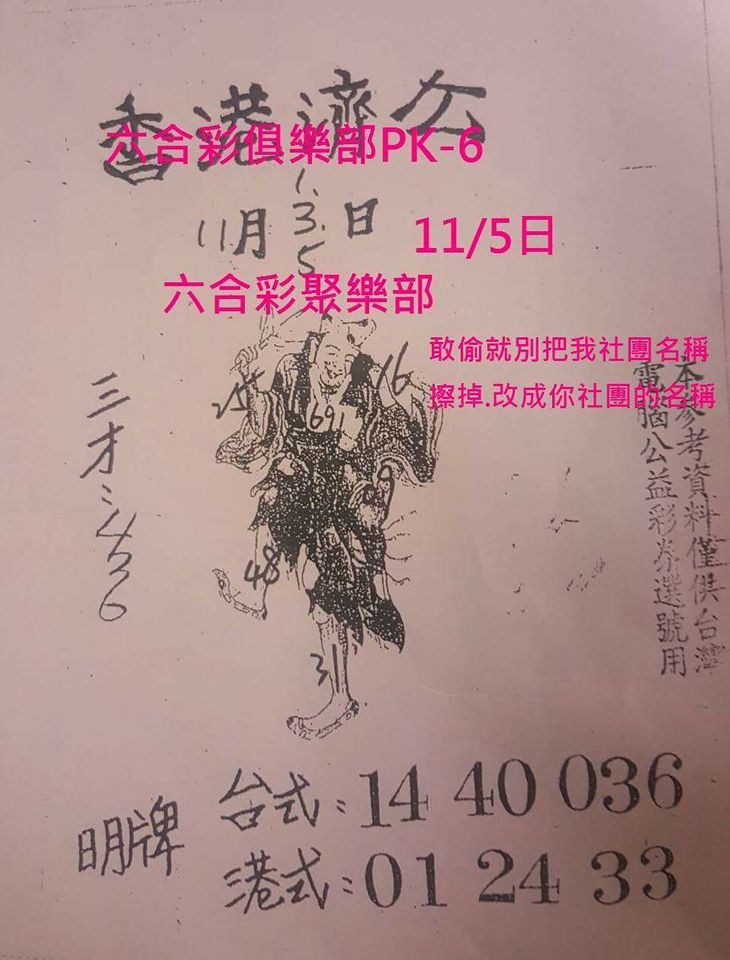 香港濟公
六合彩俱樂部PK-6
11月 1.3.5 日
11/5日
六合彩聚樂部
敢偷就別把我社團名稱
擦掉.改成你社團的名稱
本參考資料僅供台灣
電腦公益彩券選號用
16
69
48
31
明牌
台式：14 40 036
港式：01 24 33